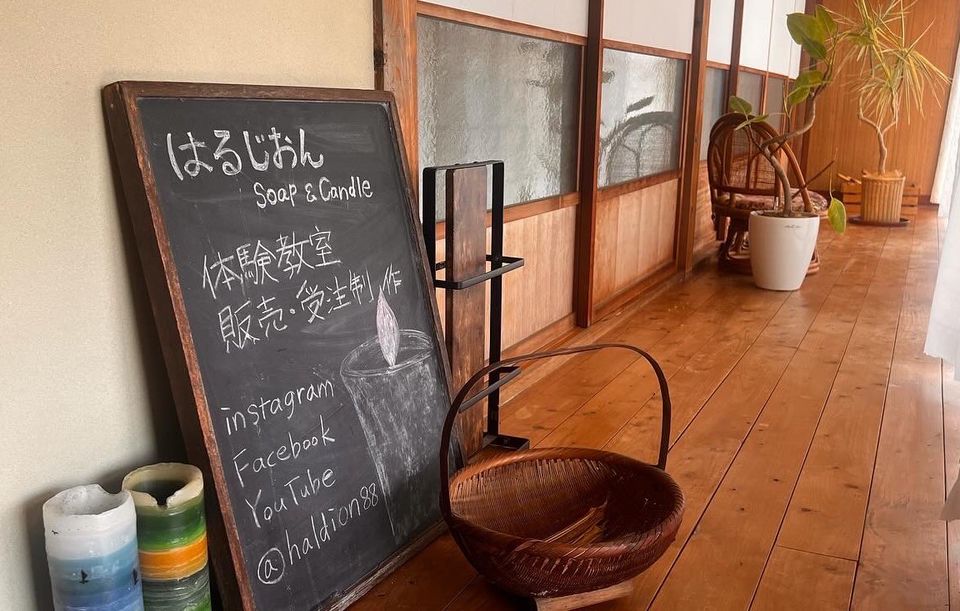 はるじおん
Soap & Candle
体験教室
販売・受注制作
instagram
Facebook
YouTube
@haldion88